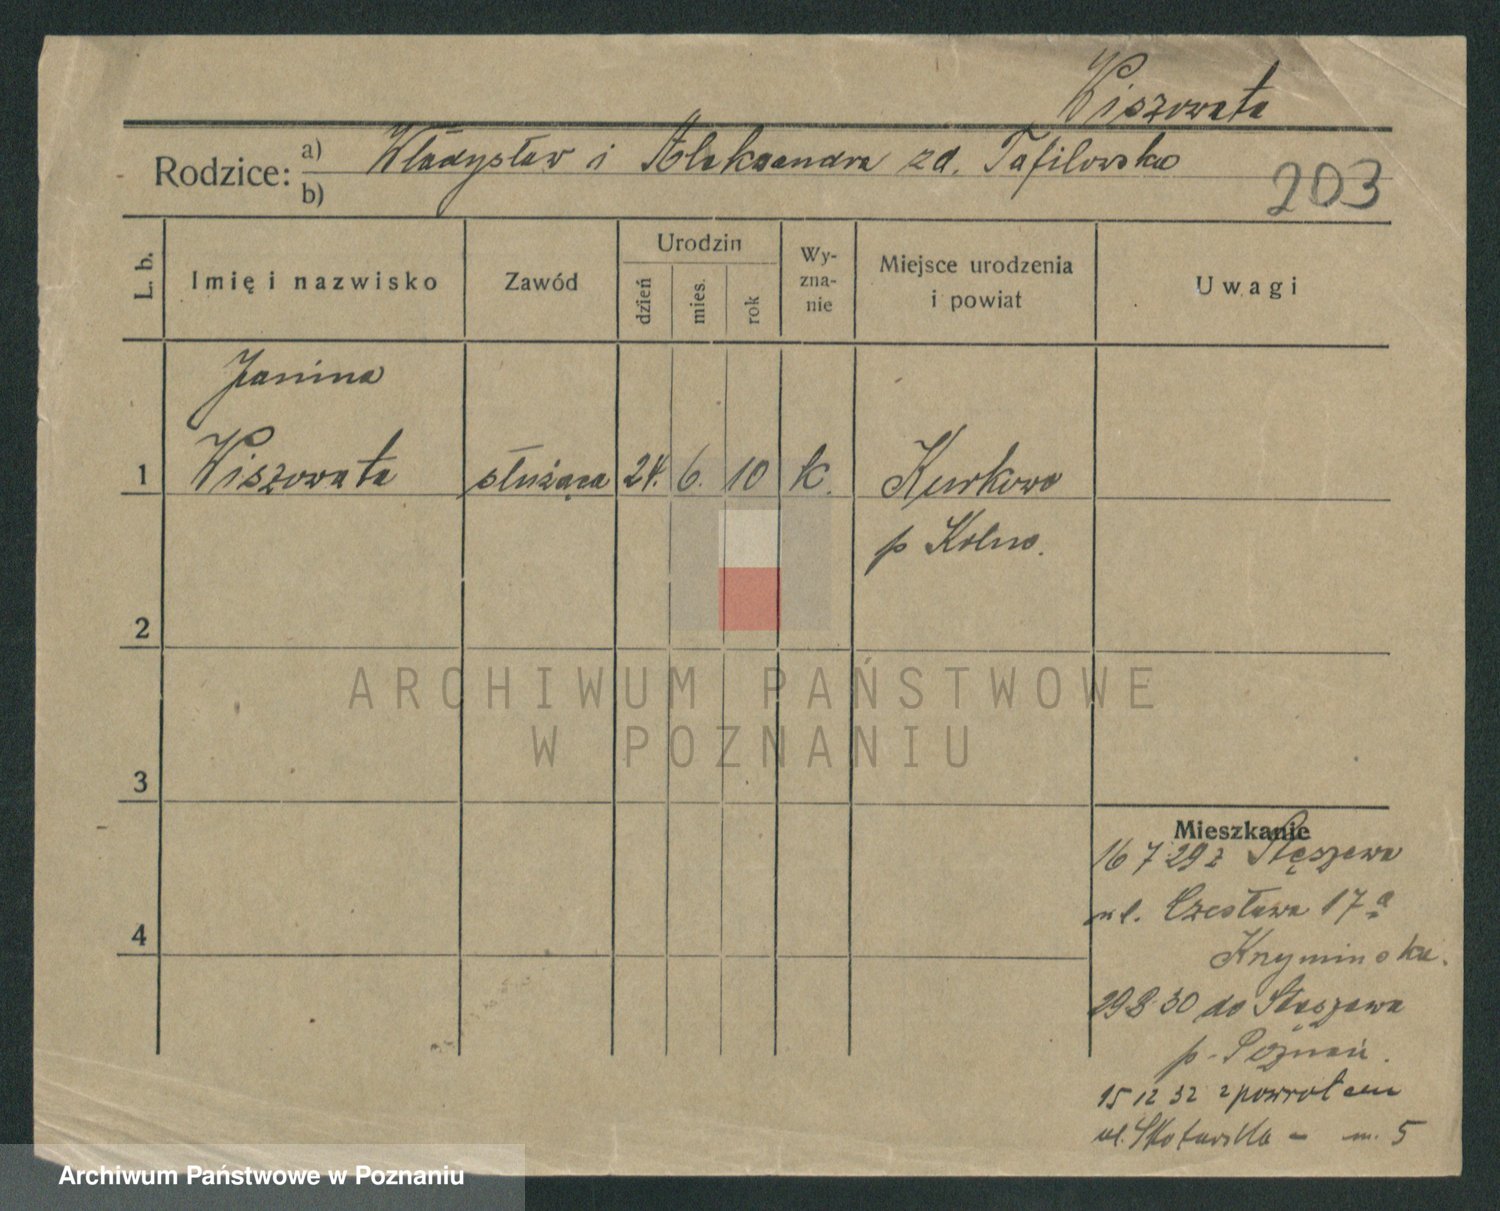 Wiszowata
Rodzice: a) Władysław i Aleksandra zd. Tafilowska
b)
203
L. b.
Imię i nazwisko
Zawód
Urodzin
dzień
mies.
rok
Wy-
zna-
nie
Miejsce urodzenia
i powiat
Uwagi
Janina
1 Wiszowata służąca 24. 6. 10 k. Kurkowo
p Kolno.
2
3
4
Mieszkanie
16 7 29 z Stęszewa
ul. Czesława 17 a
29 8 30 do Stęszewa
p. Poznań.
15 12 32 zpowrotem
ul. - m. 5
ARCHIWUM PAŃSTWOWE
W POZNANIU
Archiwum Państwowe w Poznaniu